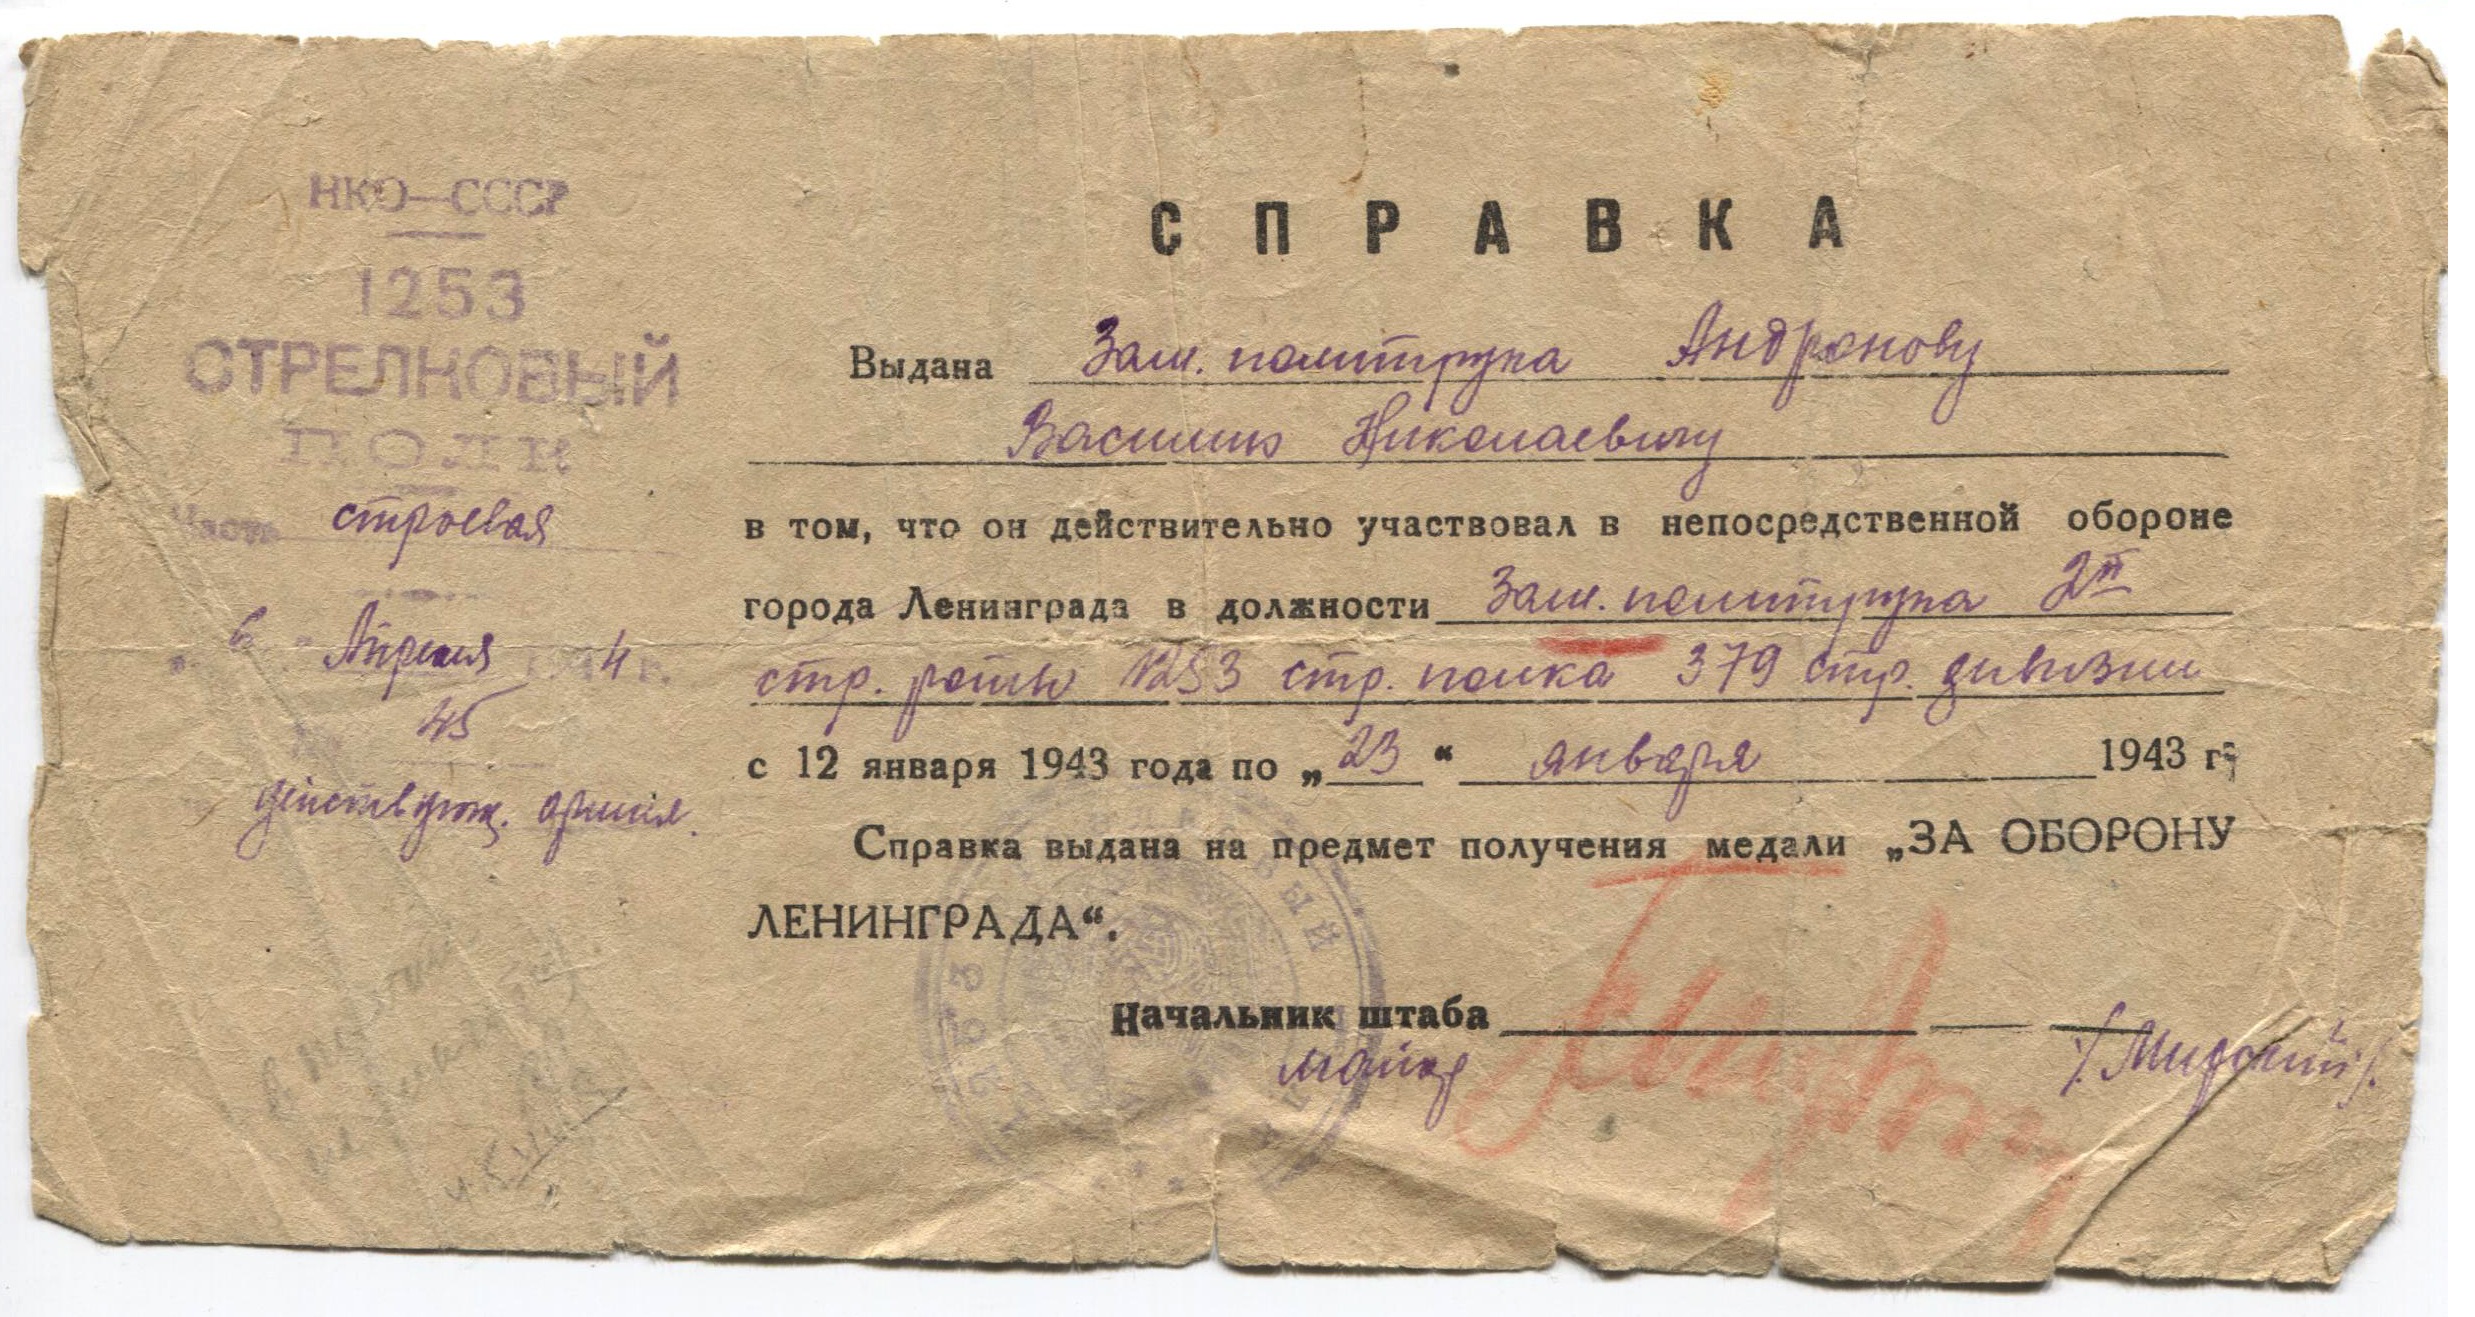 НКО—СССР
1253
СТРЕЛКОВЫЙ
ПОЛК
Часть строевая
"6" Апреля 1944 г.
№ 45
действующ. армия.
СПРАВКА
Выдана Зам. политрука Андронову
Василию Николаевичу
в том, что он действительно участвовал в непосредственной обороне
города Ленинграда в должности Зам. политрука 2й
стр. роты 1253 стр. полка 379 стр. дивизии
с 12 января 1943 года по „23“ января 1943 г.
Справка выдана на предмет получения медали „ЗА ОБОРОНУ
ЛЕНИНГРАДА“.
Начальник штаба
майор /Мирский/.
1253